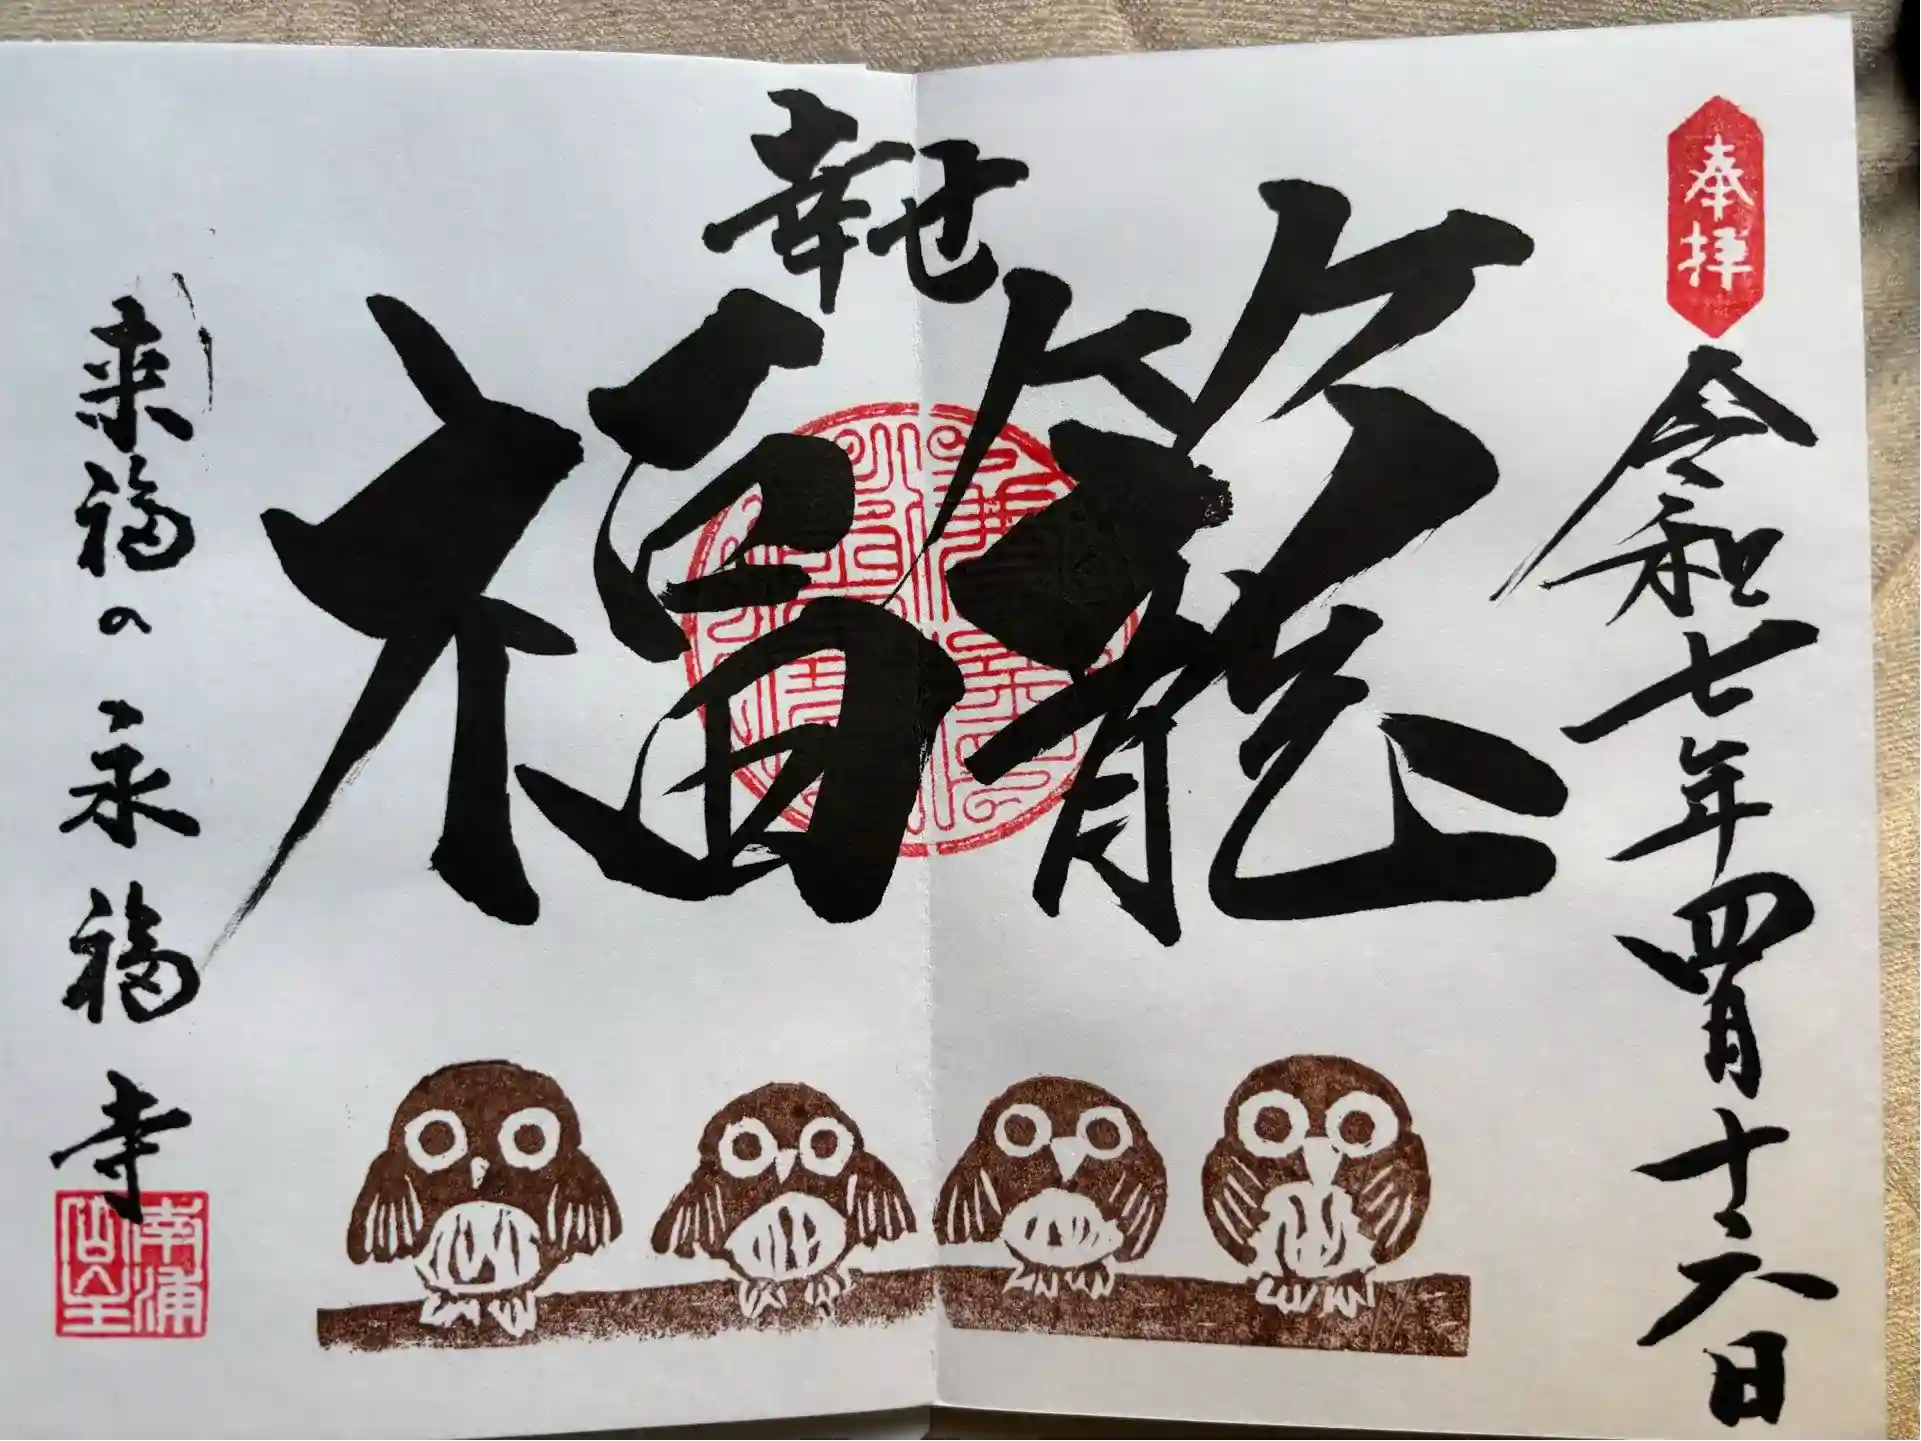 奉拝
令和七年四月十六日
幸せ
福籠
来福の永福寺
南浦